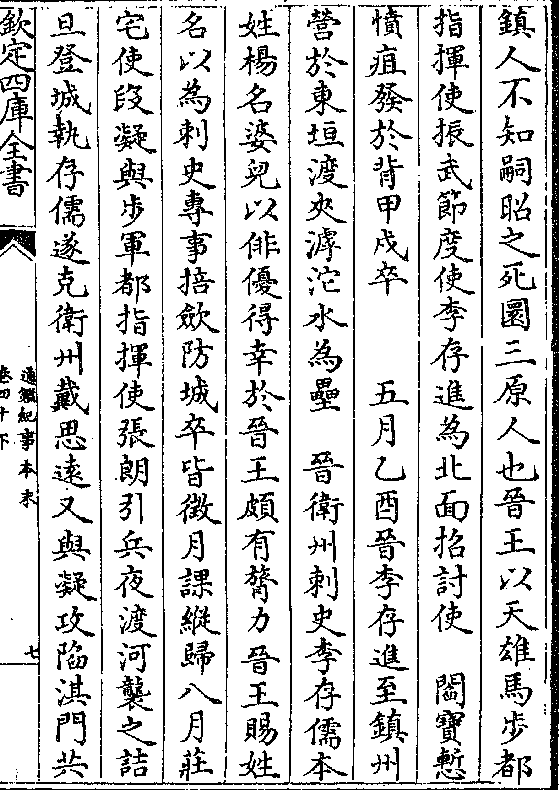 鎮人不知嗣昭之死圜三原人也晉王以天雄馬步都
指揮使振武節度使李存進為北面招討使　閻寶慙
憤疽發於背甲戌卒　五月乙酉晉李存進至鎮州
營於東垣渡夾滹沱水為壘　晉衛州刺史李存儒本
姓楊名婆兒以俳優得幸於晉王頗有膂力晉王賜姓
名以為刺史專事掊斂防城卒皆徵月課縱歸八月莊
宅使段凝與步軍都指揮使張朗引兵夜渡河襲之詰
旦登城執存儒遂克衛州戴思遠又與凝攻陷淇門共
欽定四庫全書
通鑑紀事本末
卷四十下
七